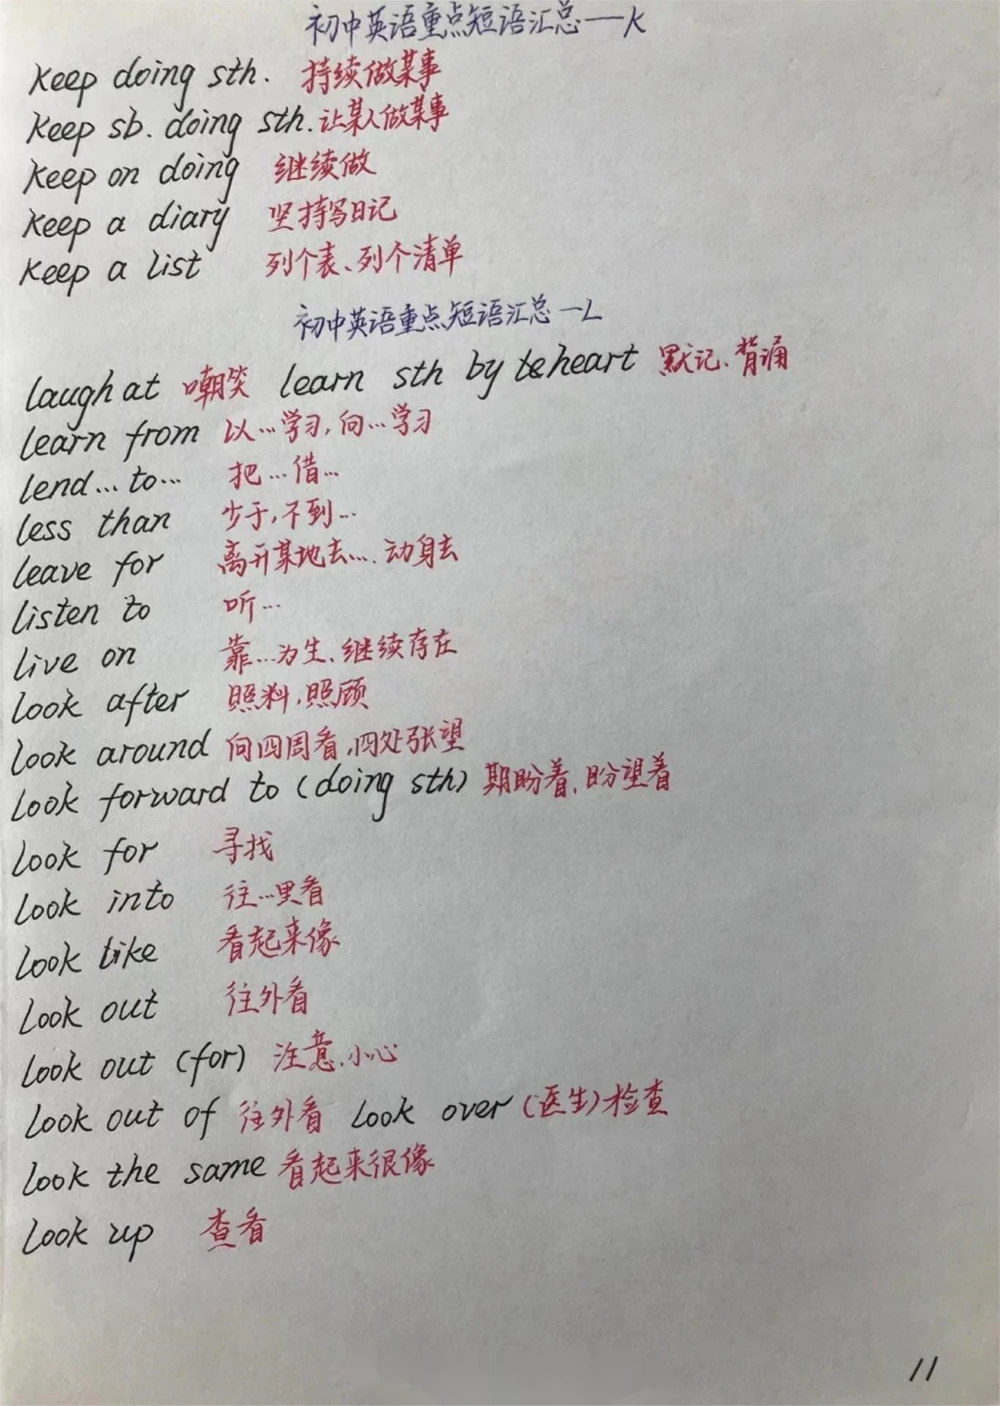 初中英语重点短语汇总——K
keep doing sth. 持续做某事
keep sb. doing sth. 让某人做某事
keep on doing 继续做
keep a diary 坚持写日记
keep a list 列个表、列个清单
初中英语重点短语汇总—L
laugh at 嘲笑 learn sth by heart 默记、背诵
learn from 以…学习,向…学习
lend…to… 把…借…
less than 少于,不到…
leave for 离开某地去…、动身去
listen to 听…
live on 靠…为生、继续存在
look after 照料,照顾
look around 向四周看,四处张望
look forward to (doing sth) 期盼着、盼望着
look for 寻找
look into 往…里看
look like 看起来像
look out 往外看
look out (for) 注意、小心
look out of 往外看 look over (医生)检查
look the same 看起来很像
look up 查看
11